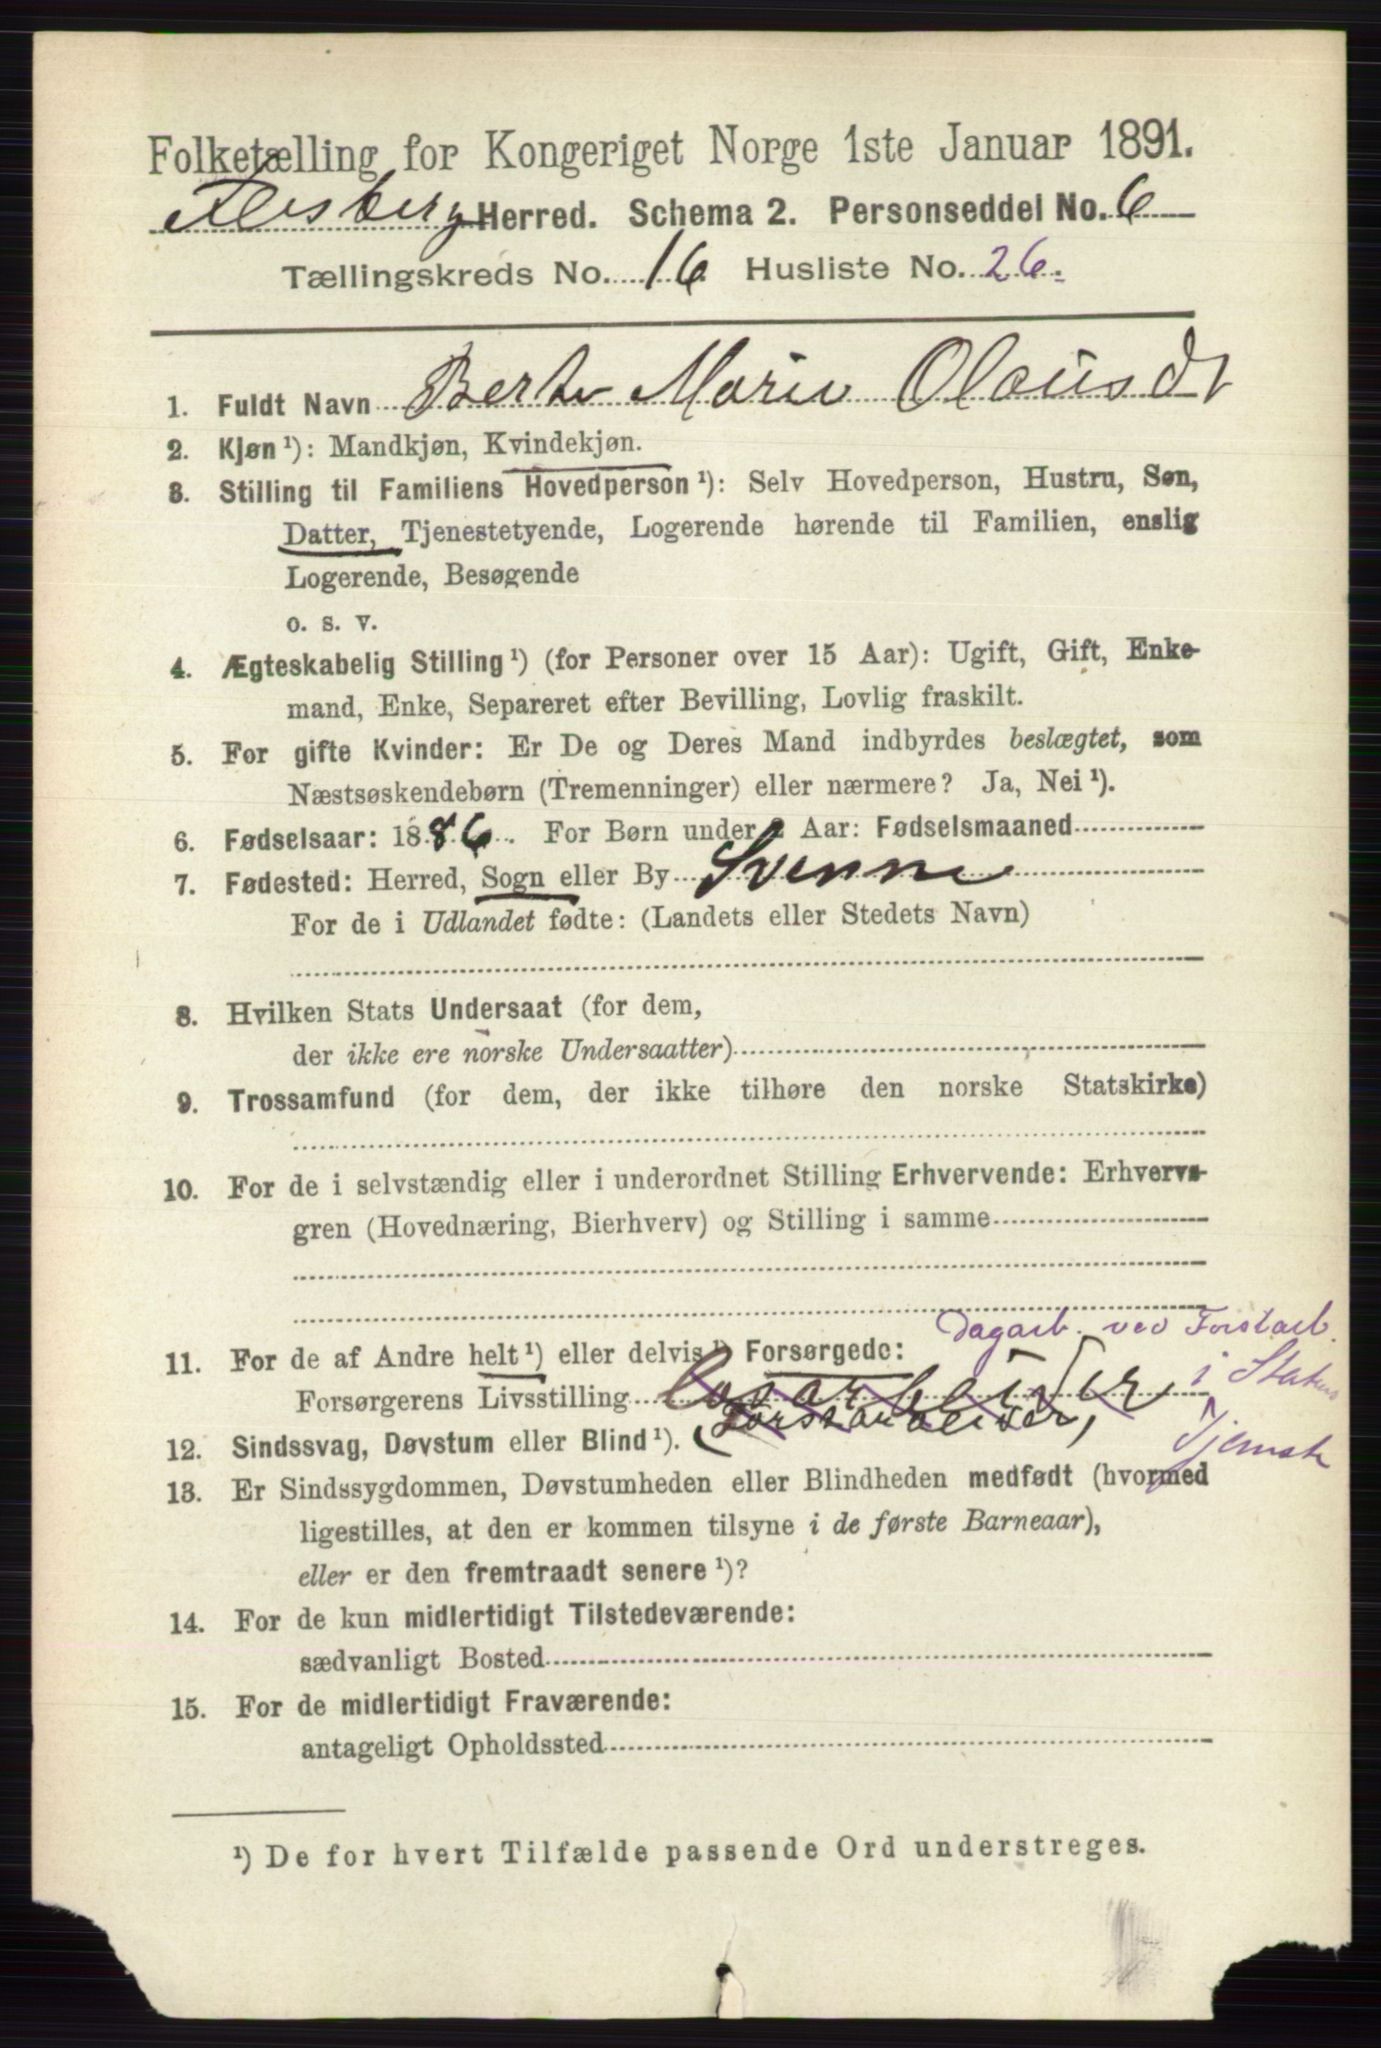 Folketælling for Kongeriget Norge 1ste Januar 1891.
Flesberg Herred. Schema 2. Personseddel No. 6
Tællingskreds No. 16 Husliste No. 26.
1. Fuldt Navn Berte Marie Olausdt
2. Kjøn ¹): Mandkjøn, Kvindekjøn.
3. Stilling til Familiens Hovedperson ¹): Selv Hovedperson, Hustru, Søn,
Datter, Tjenestetyende, Logerende hørende til Familien, enslig
Logerende, Besøgende
o. s. v.
4. Ægteskabelig Stilling ¹) (for Personer over 15 Aar): Ugift, Gift, Enke-
mand, Enke, Separeret efter Bevilling, Lovlig fraskilt.
5. For gifte Kvinder: Er De og Deres Mand indbyrdes beslægtet, som
Næstsøskendebørn (Tremenninger) eller nærmere? Ja, Nei ¹).
6. Fødselsaar: 1886. For Børn under 2 Aar: Fødselsmaaned
7. Fødested: Herred, Sogn eller By Svenne
For de i Udlandet fødte: (Landets eller Stedets Navn)
8. Hvilken Stats Undersaat (for dem,
der ikke ere norske Undersaatter)
9. Trossamfund (for dem, der ikke tilhøre den norske Statskirke)
10. For de i selvstændig eller i underordnet Stilling Erhvervende: Erhvervs-
gren (Hovednæring, Bierhverv) og Stilling i samme
Dagarb. ved Forstarb.
11. For de af Andre helt ¹) eller delvis ¹) Forsørgede:
i Statens
Forsørgerens Livsstilling Løsarbeider
(Forstarbeider)
Tjeneste
12. Sindssvag, Døvstum eller Blind ¹).
13. Er Sindssygdommen, Døvstumheden eller Blindheden medfødt (hvormed
ligestilles, at den er kommen tilsyne i de første Barneaar),
eller er den fremtraadt senere ¹)?
14. For de kun midlertidigt Tilstedeværende:
sædvanligt Bosted
15. For de midlertidigt Fraværende:
antageligt Opholdssted
¹) De for hvert Tilfælde passende Ord understreges.